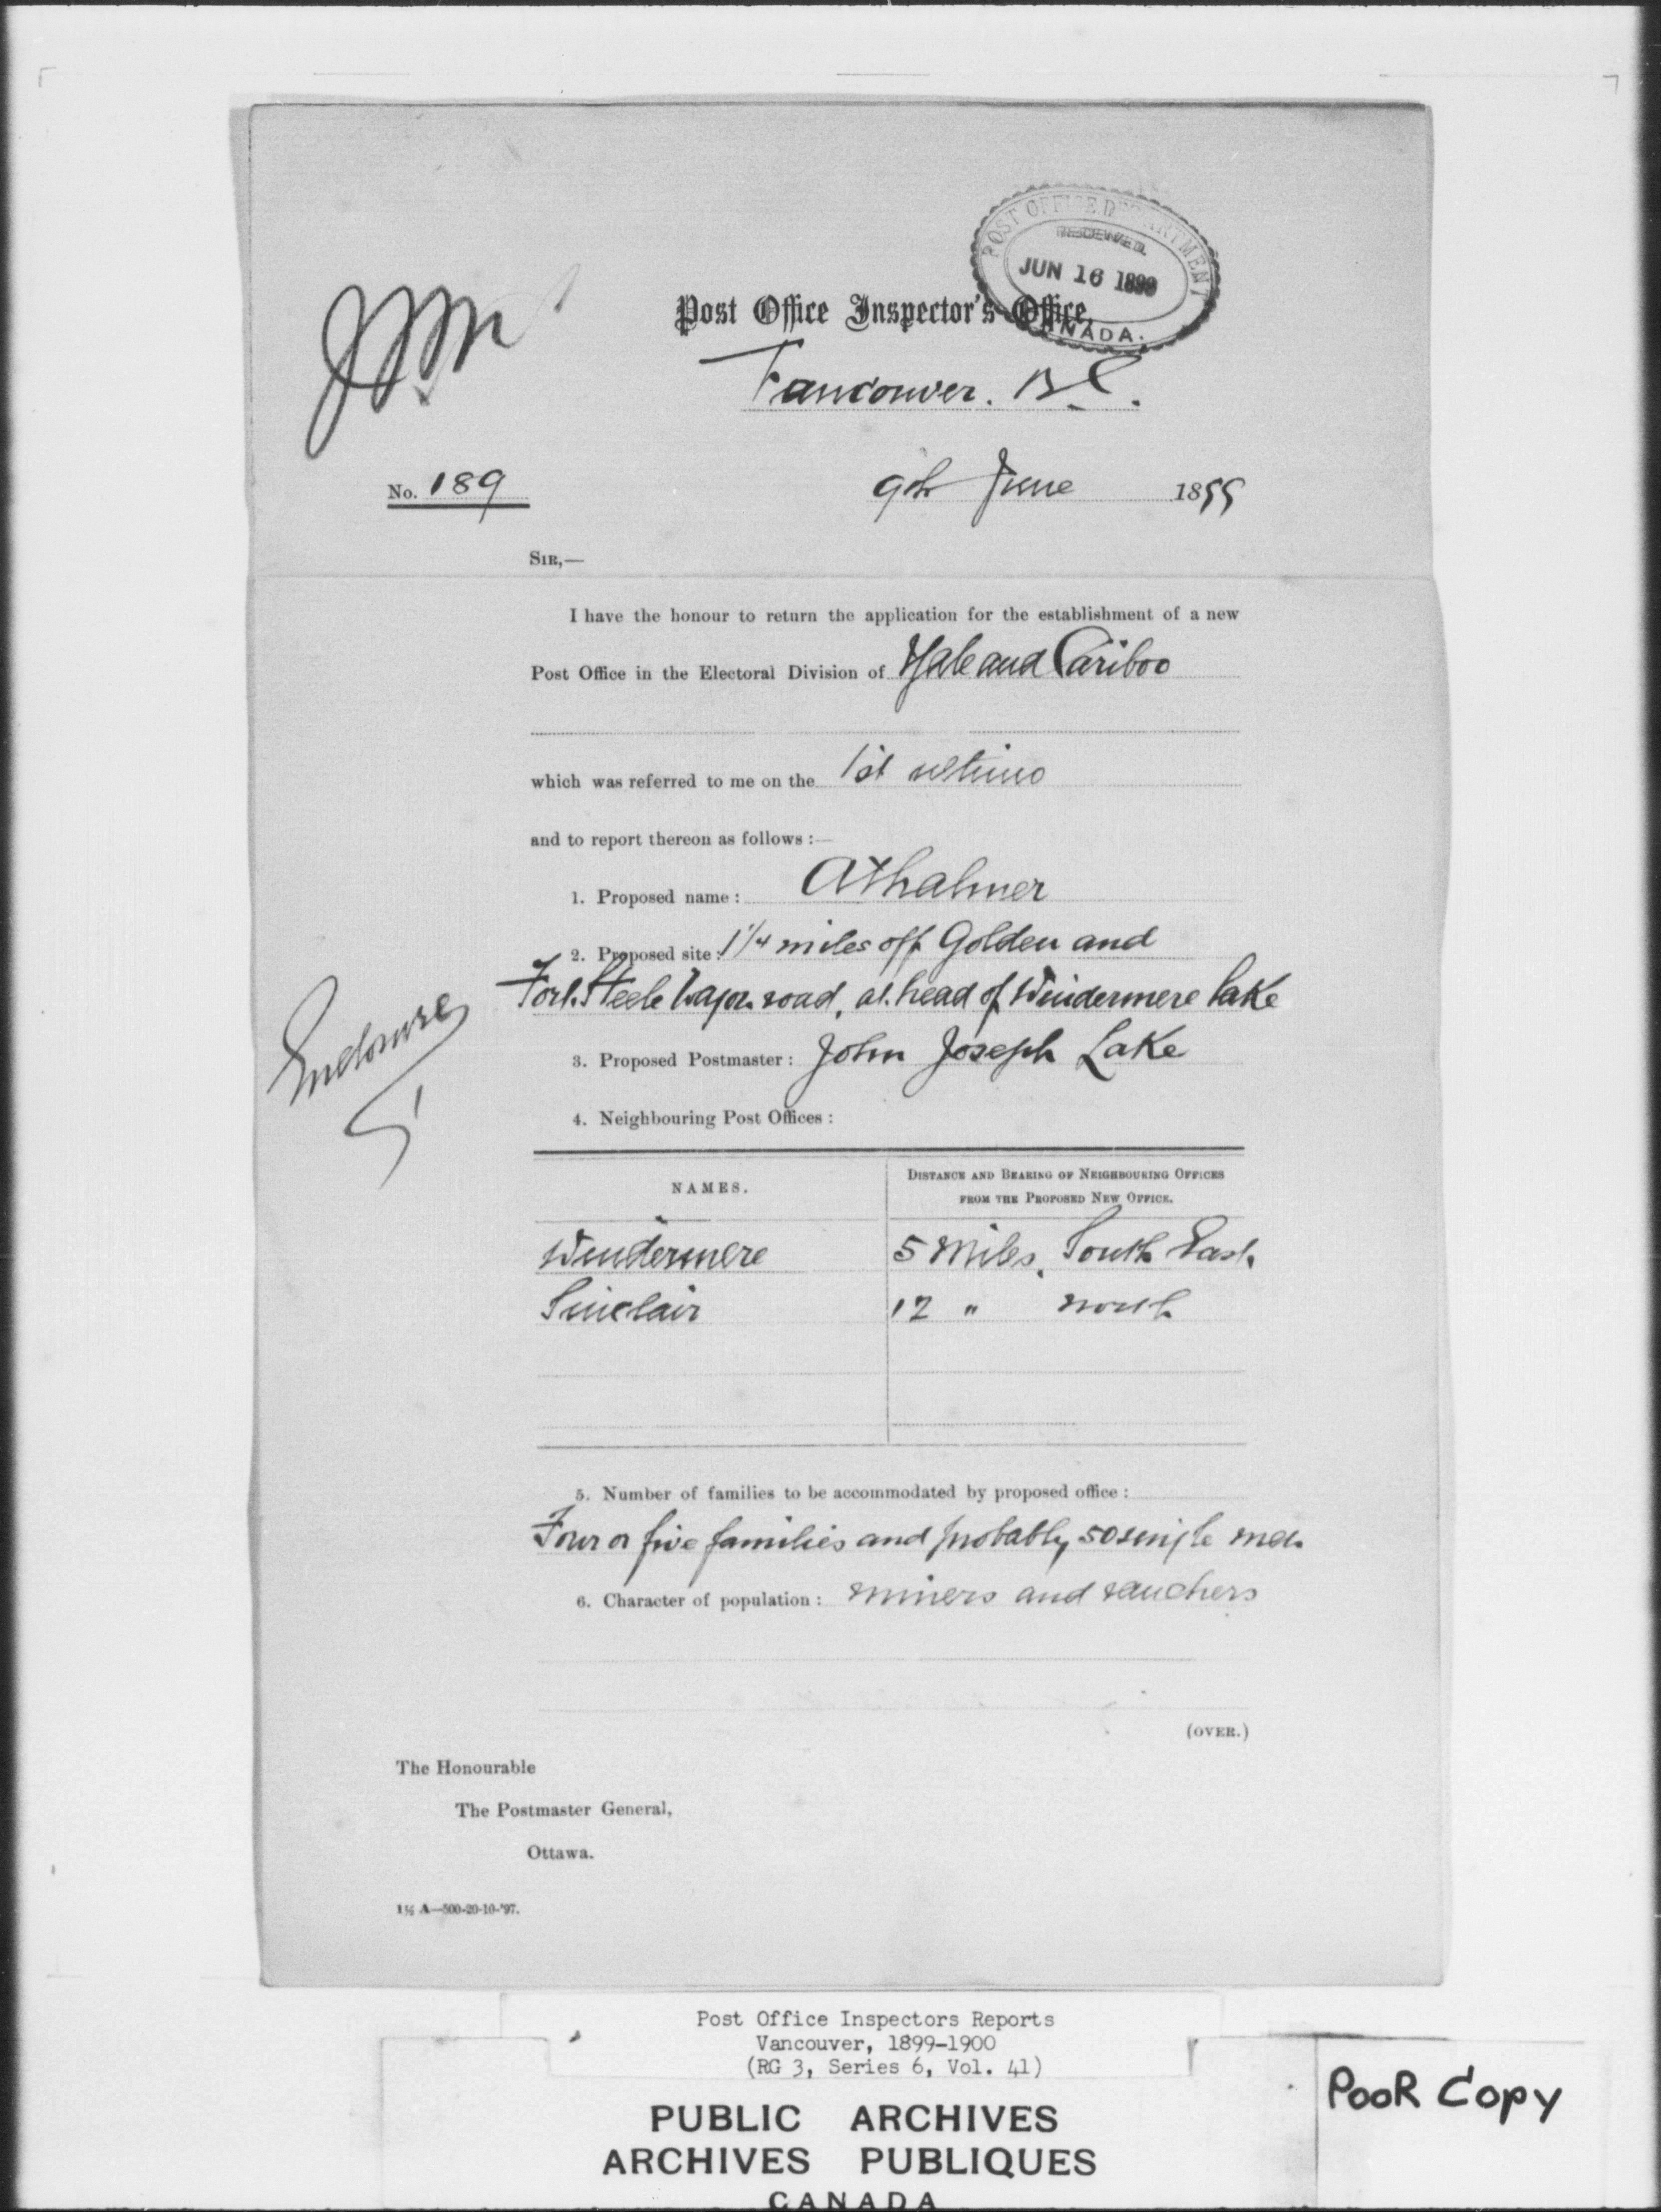 POST OFFICE DEPARTMENT
RECEIVED
JUN 16 1899
CANADA.
Post Office Inspector's Office,
Vancouver. B.C.
No. 189
9th June 1899
SIR,—
I have the honour to return the application for the establishment of a new
Post Office in the Electoral Division of Yale and Cariboo
which was referred to me on the 1st ultimo
and to report thereon as follows :—
1. Proposed name : Athalmer
2. Proposed site : 1 1/4 miles off Golden and
Fort Steele Wagon road, at head of Windermere Lake
Enclosures
5
3. Proposed Postmaster : John Joseph Lake
4. Neighbouring Post Offices :
NAMES.
DISTANCE AND BEARING OF NEIGHBOURING OFFICES
FROM THE PROPOSED NEW OFFICE.
Windermere 5 Miles, South East.
Sinclair 12 " north
5. Number of families to be accommodated by proposed office :
Four or five families and probably 50 single men.
6. Character of population : miners and ranchers
(OVER.)
The Honourable
The Postmaster General,
Ottawa.
A—500-20-10-'97.
Post Office Inspectors Reports
Vancouver, 1899-1900
(RG 3, Series 6, Vol. 41)
POOR COPY
PUBLIC ARCHIVES
ARCHIVES PUBLIQUES
CANADA